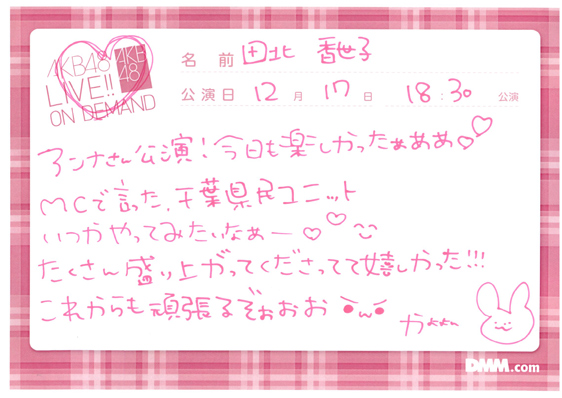 AKB48
LIVE!!
ON DEMAND
AKB
48
名前 田北 香世子
公演日 12月17日 18:30公演
アンナさん公演!今日も楽しかったぁぁぁ♡♡
MCで言った、千葉県民ユニット
いつかやってみたいなぁー♡♡
たくさん盛り上がってくださってて嬉しかった!!!
これからも頑張るぞぉぉぉ
かよよん
DMM.com